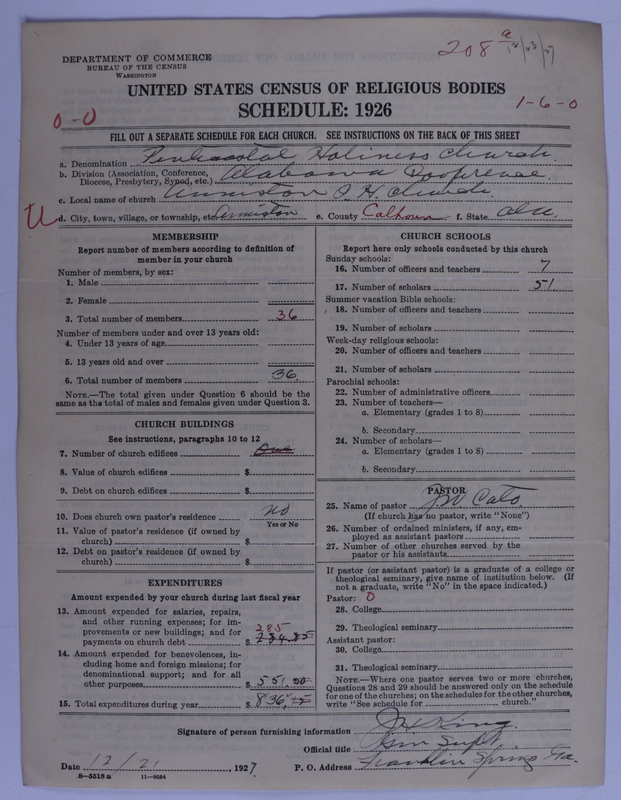 208 a 12/23/27
DEPARTMENT OF COMMERCE
BUREAU OF THE CENSUS
WASHINGTON
UNITED STATES CENSUS OF RELIGIOUS BODIES
SCHEDULE: 1926
0-0
1-6-0
FILL OUT A SEPARATE SCHEDULE FOR EACH CHURCH. SEE INSTRUCTIONS ON THE BACK OF THIS SHEET
a. Denomination Pentecostal Holiness Church.
b. Division (Association, Conference, Diocese, Presbytery, Synod, etc.) Alabama Conference
c. Local name of church Anniston P. H. Church.
U
d. City, town, village, or township, etc. Anniston e. County Calhoun f. State Ala.
MEMBERSHIP
Report number of members according to definition of
member in your church
Number of members, by sex:
1. Male
2. Female
3. Total number of members 36
Number of members under and over 13 years old:
4. Under 13 years of age
5. 13 years old and over
6. Total number of members 36.
NOTE.—The total given under Question 6 should be
same as the total of males and females given under Question 3.
CHURCH BUILDINGS
See instructions, paragraphs 10 to 12
7. Number of church edifices One
8. Value of church edifices $
9. Debt on church edifices $
10. Does church own pastor's residence no
Yes or No
11. Value of pastor's residence (if owned by
church) $
12. Debt on pastor's residence (if owned by
church) $
EXPENDITURES
Amount expended by your church during last fiscal year
13. Amount expended for salaries, repairs,
and other running expenses; for im-
provements or new buildings; and for 285
payments on church debt $ 284.85
14. Amount expended for benevolences, in-
cluding home and foreign missions; for
denominational support; and for all
other purposes $ 551.30
15. Total expenditures during year $ 836.15
CHURCH SCHOOLS
Report here only schools conducted by this church
Sunday schools:
16. Number of officers and teachers 7
17. Number of scholars 51
Summer vacation Bible schools:
18. Number of officers and teachers
19. Number of scholars
Week-day religious schools:
20. Number of officers and teachers
21. Number of scholars
Parochial schools:
22. Number of administrative officers
23. Number of teachers—
a. Elementary (grades 1 to 8)
b. Secondary
24. Number of scholars—
a. Elementary (grades 1 to 8)
b. Secondary
PASTOR
25. Name of pastor Cato
(If church has no pastor, write "None")
26. Number of ordained ministers, if any, em-
ployed as assistant pastors
27. Number of other churches served by the
pastor or his assistants
If pastor (or assistant pastor) is a graduate of a college or
theological seminary, give name of institution below. (If
not a graduate, write "No" in the space indicated.)
Pastor: 0
28. College
29. Theological seminary
Assistant pastor:
30. College
31. Theological seminary
NOTE.—Where one pastor serves two or more churches,
Questions 28 and 29 should be answered only on the schedule
for one of the churches; on the schedules for the other churches,
write "See schedule for church."
Signature of person furnishing information J. H. King.
Official title Gen Supt.
Date 12/21, 1927. P. O. Address Franklin Springs Ga.
8-5518 a 11-9084